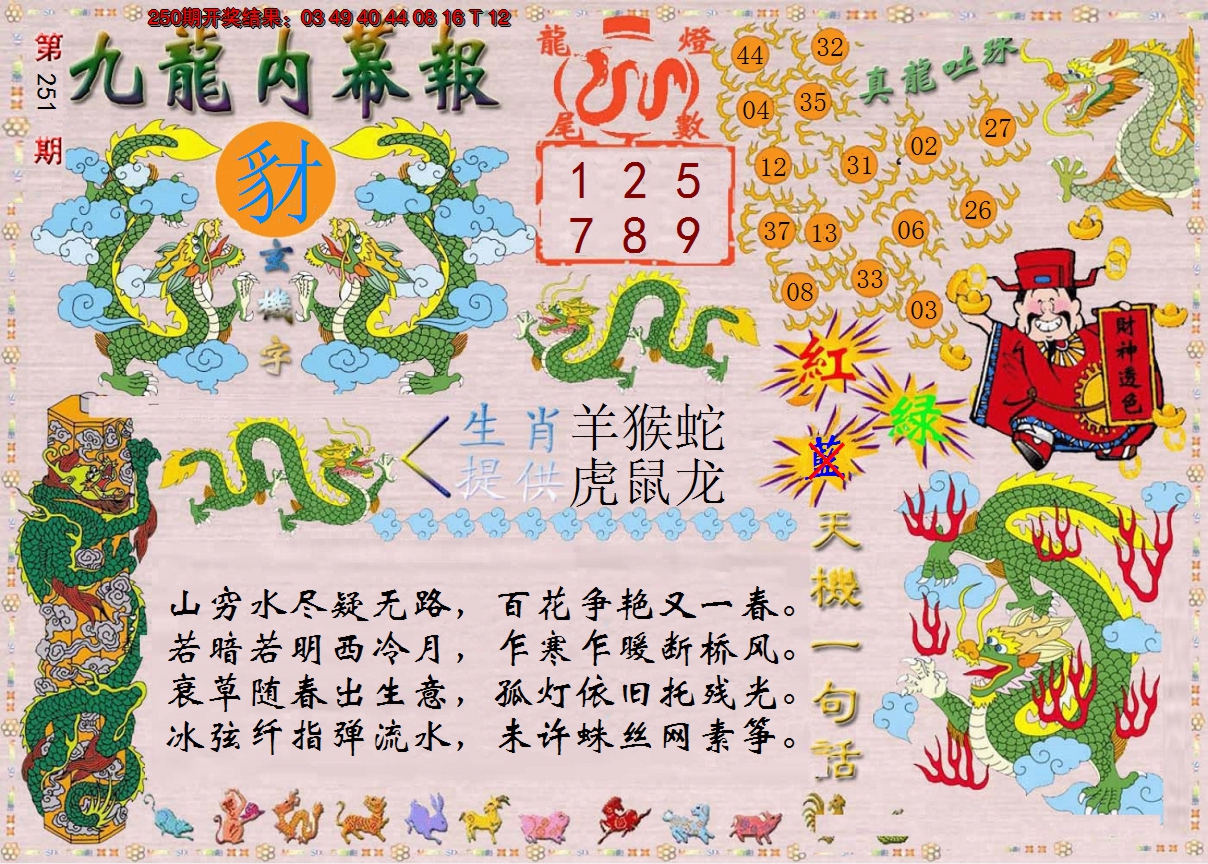 250期开奖结果：03 49 40 44 08 16 T 12
第251期
九龍内幕報
豺
玄機字
龍燈尾數
1 2 5
7 8 9
真龍吐珠
44 32
04 35
02 27
12 31
26
37 13 06
33
08 03
財神透色
紅
绿
藍
生肖提供
羊猴蛇
虎鼠龙
天機一句話
山穷水尽疑无路，百花争艳又一春。
若暗若明西冷月，乍寒乍暖断桥风。
衰草随春出生意，孤灯依旧托残光。
冰弦纤指弹流水，未许蛛丝网素筝。